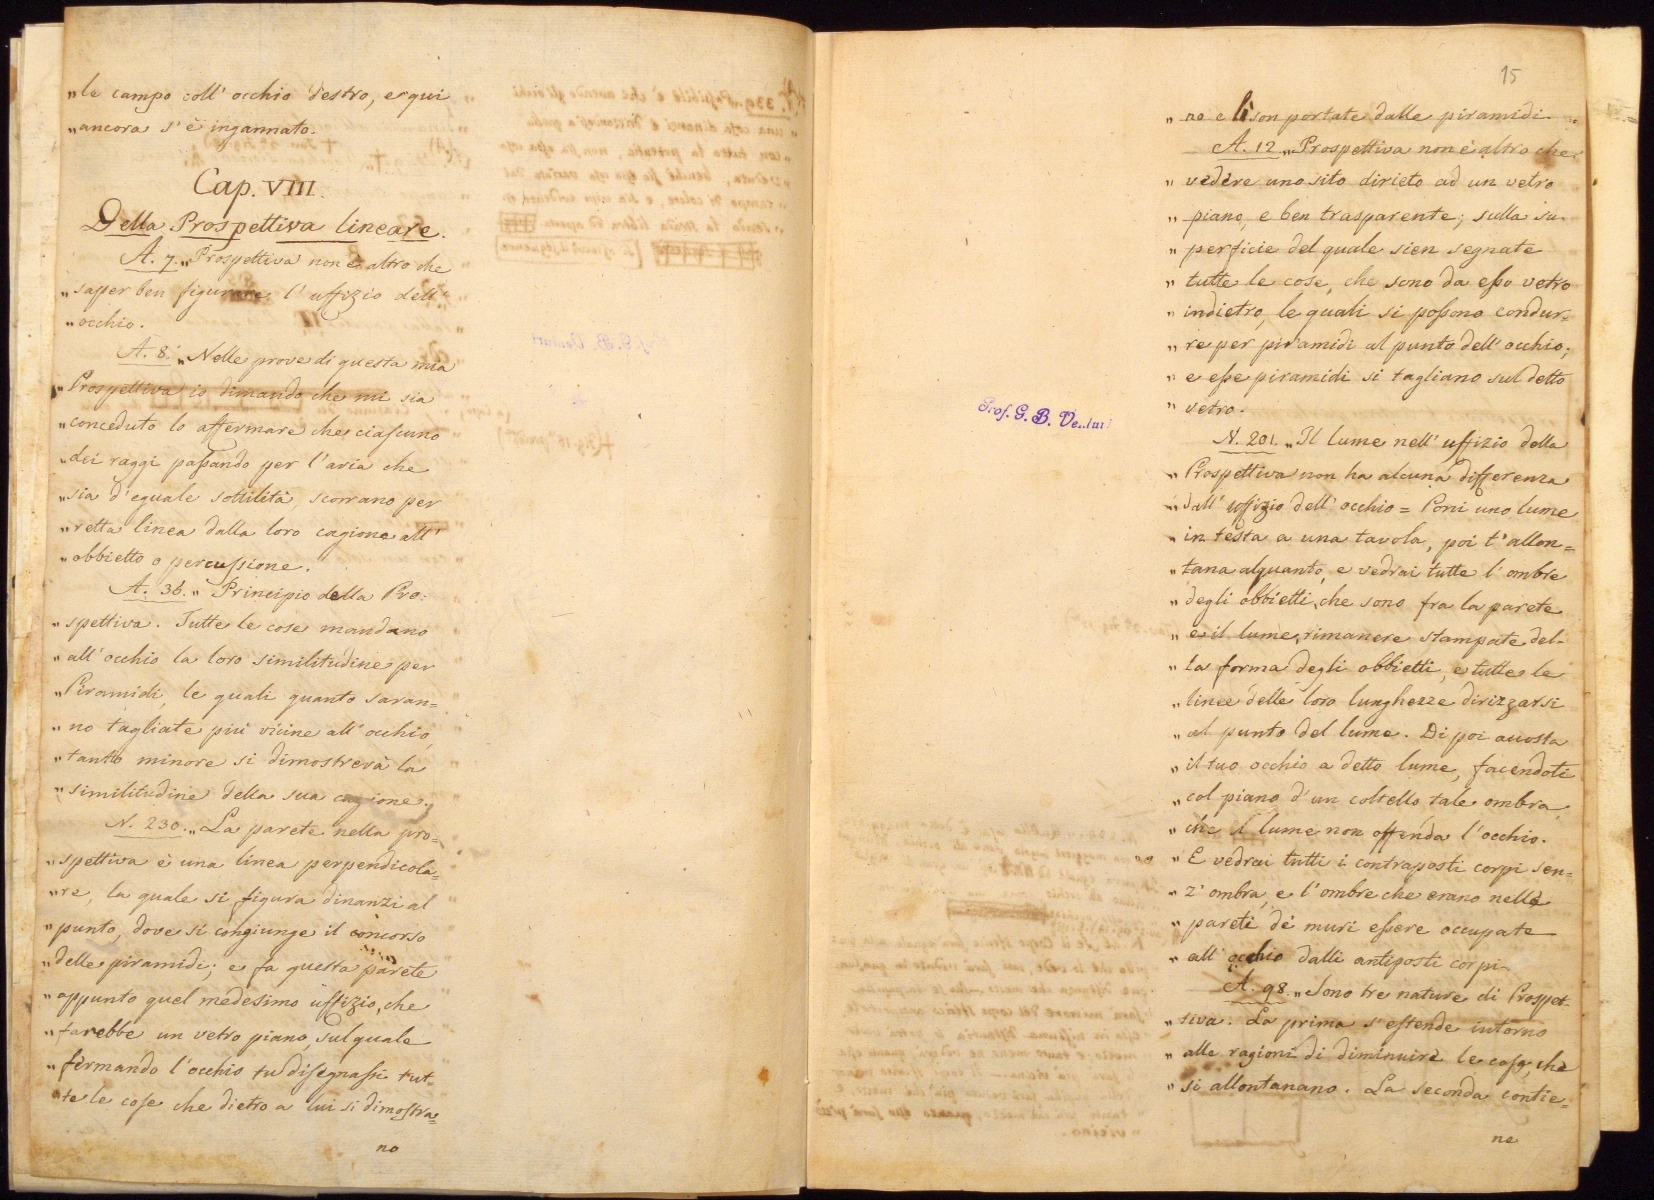 „le campo coll' occhio destro, e qui
„ancora s' è ingannato.
Cap. VIII.
Della Prospettiva lineare.
A. 7. „Prospettiva non è altro che
„saper ben figurare l' uffizio dell'
„occhio.
A. 8. „Nelle prove di questa mia
„Prospettiva io dimando che mi sia
„conceduto lo affermare che ciascuno
„dei raggi passando per l'aria che
„sia d'eguale sottilità, scorrano per
„retta linea dalla loro cagione all'
„obbietto o percussione.
A. 36. „Principio della Pro=
„spettiva. Tutte le cose mandano
„all' occhio la loro similitudine per
„Piramidi, le quali quanto saran=
„no tagliate più vicine all' occhio,
„tanto minore si dimostrerà la
„similitudine della sua cagione.
N. 230. „La parete nella pro=
„spettiva è una linea perpendicola=
„re, la quale si figura dinanzi al
„punto, dove si congiunge il concorso
„delle piramidi; e fa questa parete
„appunto quel medesimo uffizio, che
„farebbe un vetro piano, sul quale
„fermando l'occhio tu disegnassi tut=
„te le cose che dietro a lui si dimostra=
no
15
„no e lì son portate dalle piramidi.
A. 12 „Prospettiva non è altro che
„vedere uno sito dirieto ad un vetro
„piano, e ben trasparente; sulla su=
„perficie del quale sien segnate
„tutte le cose, che sono da esso vetro
„indietro, le quali si possono condur=
„re per piramidi al punto dell' occhio;
„e esse piramidi si tagliano sul detto
„vetro.
N. 201. „Il lume nell' uffizio della
„Prospettiva non ha alcuna differenza
„dall' uffizio dell' occhio = Poni uno lume
„in testa a una tavola, poi t' allon=
„tana alquanto, e vedrai tutte l' ombre
„degli obbietti, che sono fra la parete
„e il lume, rimanere stampate del=
„la forma degli obbietti, e tutte le
„linee delle loro lunghezze dirizzarsi
„al punto del lume. Di poi accosta
„il tuo occhio a detto lume, facendoti
„col piano d' un coltello tale ombra,
„che il lume non offenda l' occhio.
„E vedrai tutti i contraposti corpi sen=
„z' ombra, e l' ombre che erano nelle
„pareti de' muri essere occupate
„all' occhio dalli antiposti corpi.
A. 98. „Sono tre nature di Prospet=
„tiva. La prima s' estende intorno
„alle ragioni di diminuire le cose, che
„si allontanano. La seconda contie=
ne
Prof. G. B. Venturi